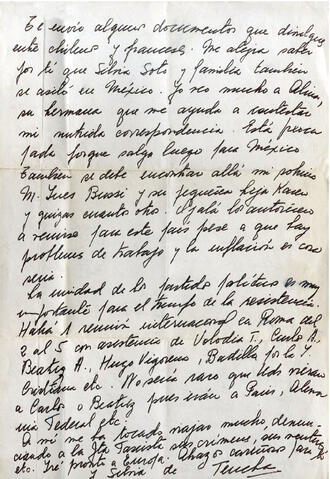 Te envío algunos documentos que divulgues
entre chilenos y franceses. Me alegra saber
por ti que Silvia Soto y familia también
se asiló en México. Yo veo mucho a
su hermana que me ayuda a contestar
mi nutrida correspondencia. Está
porque salgo luego para México
También se debe encontrar allá mi sobrino
M. Inés Bussi y su pequeña hija Karen
y quizás cuanto otro. Ojalá los autoricen
a venirse para este país pese a que hay
problemas de trabajo y la inflación es cosa
seria.
La unidad de los partidos políticos es muy
importante para el triunfo de la resistencia.
Habrá 1 reunión internacional en Roma del
2 al 5 con asistencia de Volodia T., Carlos A.
Beatriz A., Hugo Vigorena, Badilla por la I.
Cristiana etc. No sería raro que Uds vieran
a Carlos o Beatriz pues irán a París, Alema
nia Federal etc.
A mí me ha tocado viajar mucho, denun
ciando a la Jta Fascista sus crímenes, sus mentiras
etc. Iré pronto a Europa. Abrazos cariñosos para ti
y Silvia de Tencha